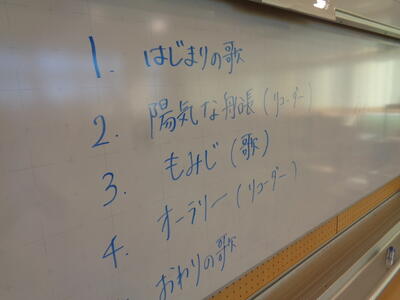 1. はじまりの歌
2. 陽気な船長(リコーダー)
3. もみじ(歌)
4. オーラリー(リコーダー)
おわりの歌